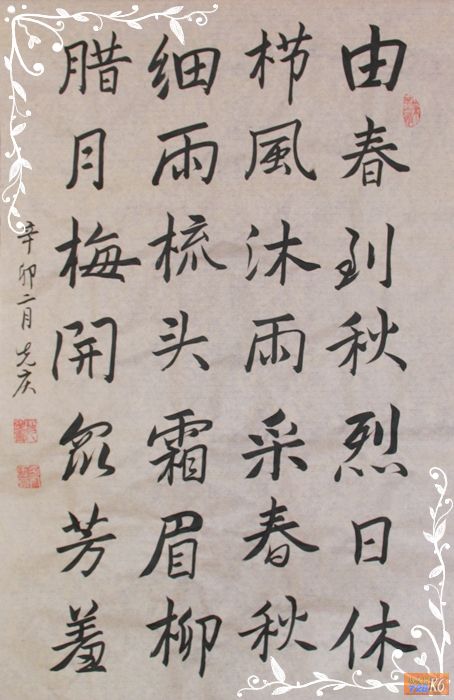 由春到秋烈日休
栉風沐雨采春秋
细雨梳头霜眉柳
腊月梅開众芳羞
辛卯二月光庆